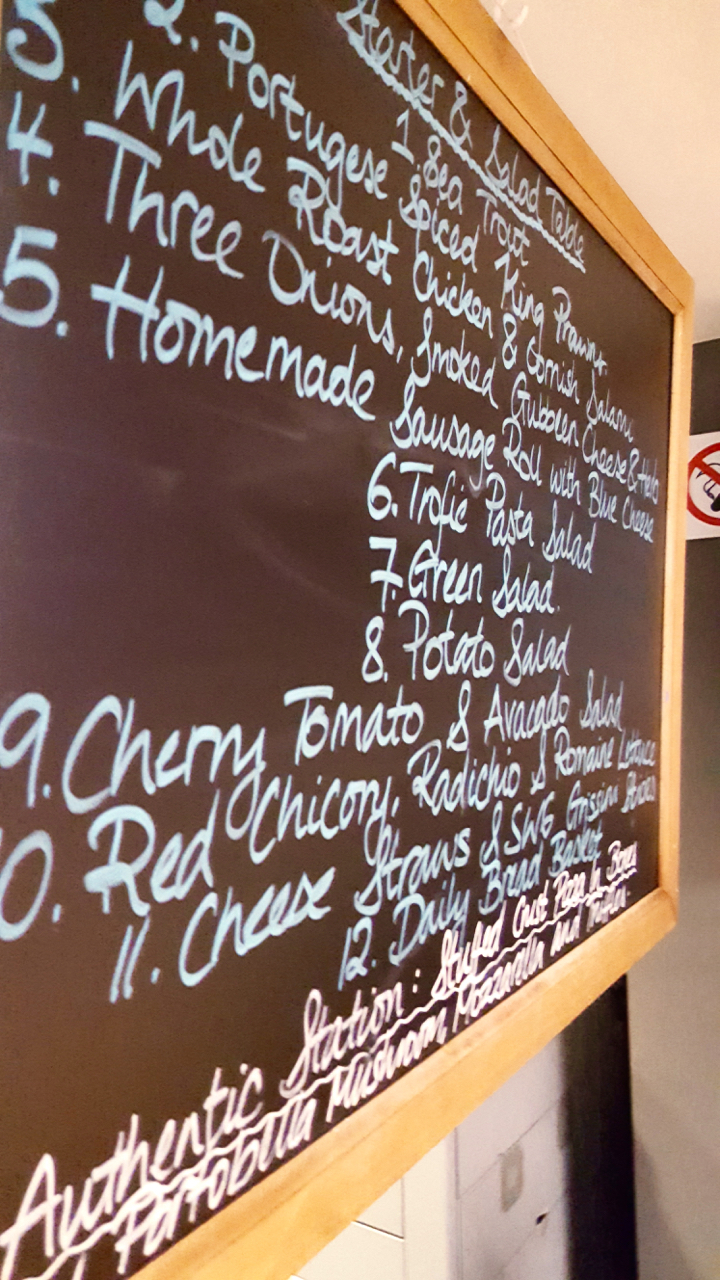 Starter & Salad Table
1. Sea Trout
2. Portugese Spiced King Prawns
3. Whole Roast Chicken & Cornish Salami
4. Three Onions, Smoked Gubbeen Cheese &
5. Homemade Sausage Roll with Blue Cheese
6. Trofie Pasta Salad
7. Green Salad.
8. Potato Salad
9. Cherry Tomato & Avacado Salad
10. Red Chicory, Radichio & Romaine Lettuce
11. Cheese Straws & SWF Grissini Sticks
12. Daily Bread Basket
Authentic Station: Stuffed Crust Pizza In Boxes
Portobella Mushroom, Mozzarella and Truffle.